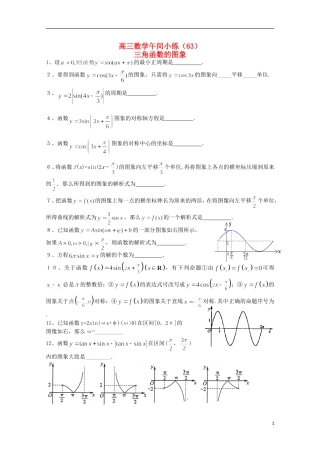 高三数学午间小练（63）
三角函数的图象
1、设 a≠0, 则函数 y=sin(ax+π) 的最小正周期是________.
2、要得到函数 y=cos(3x-π/6) 的图象，只需将 y=cos3x 的图象向____平移____单位.
3、y=|sin(4x-π/3)| 的周期是________.
4、函数 y=3sin(2x+π/6) 图象的对称轴方程是________.
5、函数 y=cos(3x+π/4) 图象的对称中心的坐标是________.
6、将函数 f(x)=sin(2x-π/3) 的图像向左平移π/3个单位,再将图像上各点的横坐标压缩到原来
的1/2, 那么所得到的图象的解析式为________.
7、把函数 y=f(x) 的图像上每一点的横坐标伸长为原来的两倍，在将图像向左平移π/2个单位，
所得曲线的解析式为 y=1/2 sinx，那么 y=f(x) 的一个解析式是________.
8、已知函数 y=Asin(ωx+φ)+b 的一部分图象如右图所示，
如果 A>0,ω>0,|φ|<π/2，则函数的解析式为________.
9、方程 的解的个数为________.
10、关于函数 f(x)=4sin(2x+π/3)(x∈R)，有下列命题①由 f(x)=f(x)=0可得
x-x 必是π的整数倍；②y=f(x)的表达式可改写成 y=4cos(2x-π/6)；③y=f(x)的
图象关于点(-π/6,0)对称；④y=f(x)的图象关于直线x=-π/6对称.其中正确的命题序号为
11、已知函数 y=2sin(ωx+φ)(ω>0)在区间[0，2π]的
图像如右，那么ω=________.
12、函数 y=|tanx+sinx|-|tanx-sinx| 在区间(π/2, 3π/2)
内的图象大致是________.
1